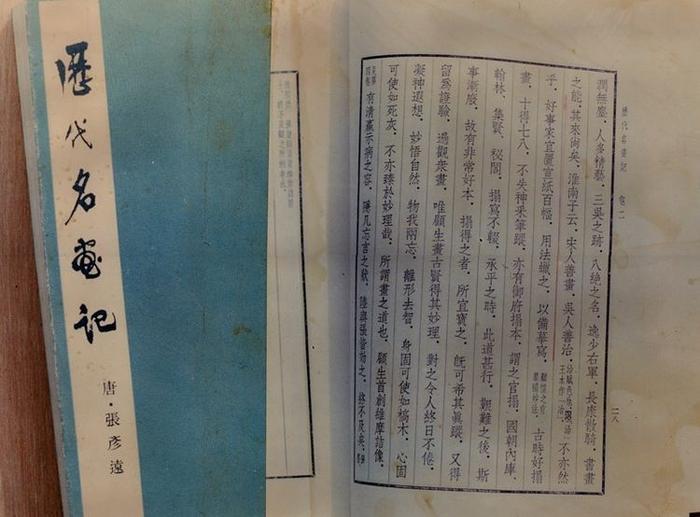 歷代名畫記
唐·張彥遠
歷代名畫記 卷二
二八
潤無塵．人多精藝．三吳之跡．八絕之名．逸少右軍．長康散騎．書畫
之能．其來尚矣．淮南子云．宋人善畫．吳人善治．不亦然
乎．好事家宜置宣紙百幅．用法蠟之．以備摹寫．古時好搨
畫．十得七八．不失神采筆蹤．亦有御府搨本．謂之官搨．國朝內庫．
翰林．集賢．秘閣．搨寫不輟．承平之時．此道甚行．艱難之後．斯
事漸廢．故有非常好本．搨得之者．所宜寶之．既可希其真蹤．又得
留為證驗．遍觀衆畫．唯顧生畫古賢得其妙理．對之令人終日不倦．
凝神遐想．妙悟自然．物我兩忘．離形去智．身固可使如槁木．心固
可使如死灰．不亦臻於妙理哉．所謂畫之道也．顧生首創維摩詰像．
有清羸示病之容．隱几忘言之狀．陸與張皆効之．終不及矣．